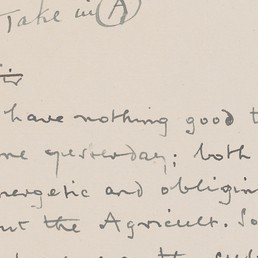 Take in A
have nothing good t
me yesterday; both
nergetic and obligin
ut the Agricult. So